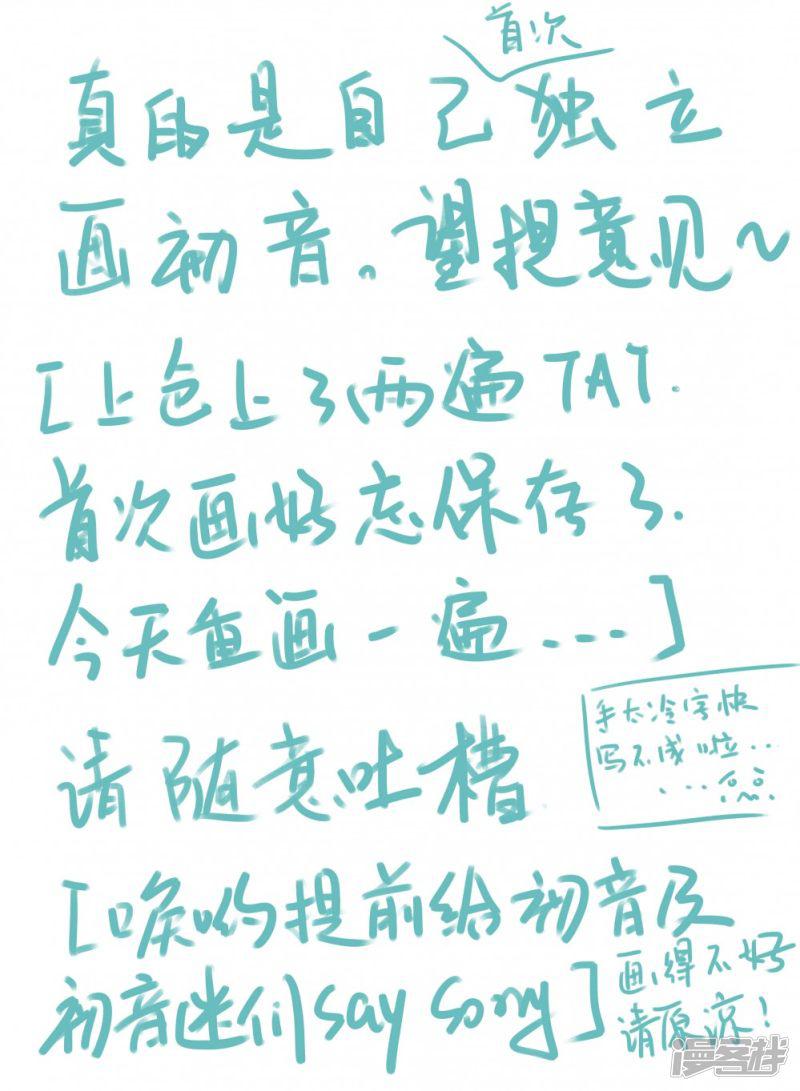 首次
真的是自己独立
画初音。望提意见~
[上色上了两遍TAT.
首次画好忘保存了.
今天重画一遍...]
手太冷字快
写不成啦..
...
请随意吐槽
[唉哟提前给初音及
初音迷们say sorry]
画得不好
请原凉!
漫客栈